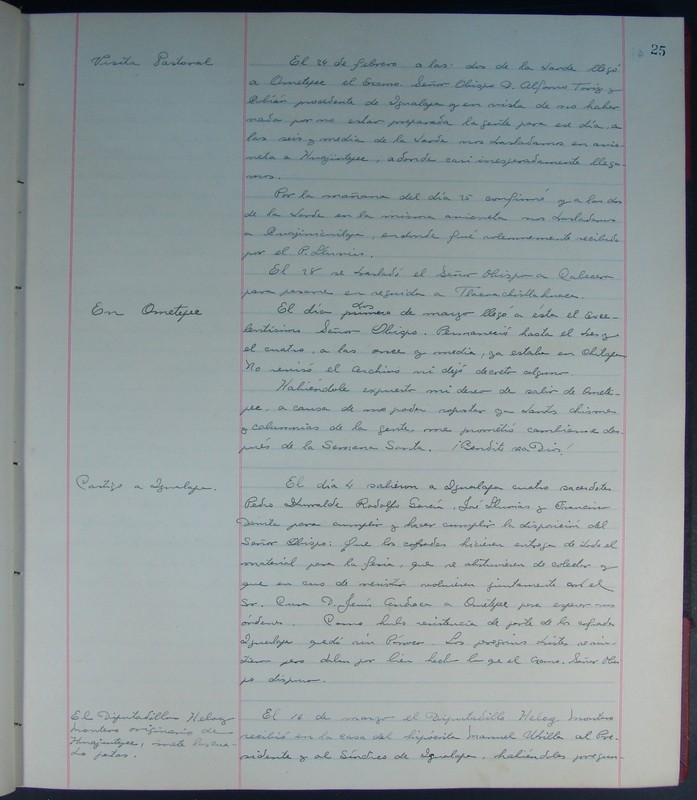 25
Visita Pastoral
El 24 de febrero a las dos de la tarde llegó
a Ometepec el Excmo. Señor Obispo D. Alfonso Toriz y
Cobián procedente de Igualapa y en vista de no haber
nada por no estar preparada la gente para ese día, a
las seis y media de la tarde nos trasladamos en avio-
neta a Huajintepec, a donde casi inesperadamente llega-
mos.
Por la mañana del día 25 confirmó y a las dos
de la tarde en la misma avioneta nos trasladamos
a Cuajinicuilapa, en donde fué solemnemente recibido
por el P.
El 28 se trasladó el Señor Obispo a
para pasarse en seguida a Tlacoachistlahuaca.
En Ometepec
El día dos primero de marzo llegó a esta el Exce-
lentísimo Señor Obispo. Permaneció hasta el tres y
el cuatro, a las once y media, ya estaba en Chilapa
No revisó el Archivo ni dejó decreto alguno.
Habiéndole expuesto mi deseo de salir de Omete-
pec, a causa de no poder soportar ya tantos chismes
y calumnias de la gente, me prometió cambiarme des-
pués de la Semana Santa. ¡Bendito sea Dios!
Castigo a Igualapa.
El día 4 salieron a Igualapa cuatro sacerdotes
Pedro Rodolfo García, José y Francisco
para cumplir y hacer cumplir la disposición del
Señor Obispo: Que los cofrades hicieran entrega de todo el
material para la feria, que se abstuvieren de colectar y
que en caso de resistir volvieren juntamente con el
Sr. Cura D. Jesús a Ometepec para esperar sus
órdenes. Como hubo resistencia de parte de los cofrades
Igualapa quedó sin Párroco. Los peregrinos tristes
pero daban por bien hecho lo que el Excmo. Señor Obis-
po dispuso.
El Diputadillo Heleg
Montero originario de
Huajintepec, mete
patas.
El 16 de marzo el Diputadillo Heleg Montero
recibió en la casa del hipócrita Manuel al Pre-
sidente y al Síndico de Igualapa, habiéndoles pregun-